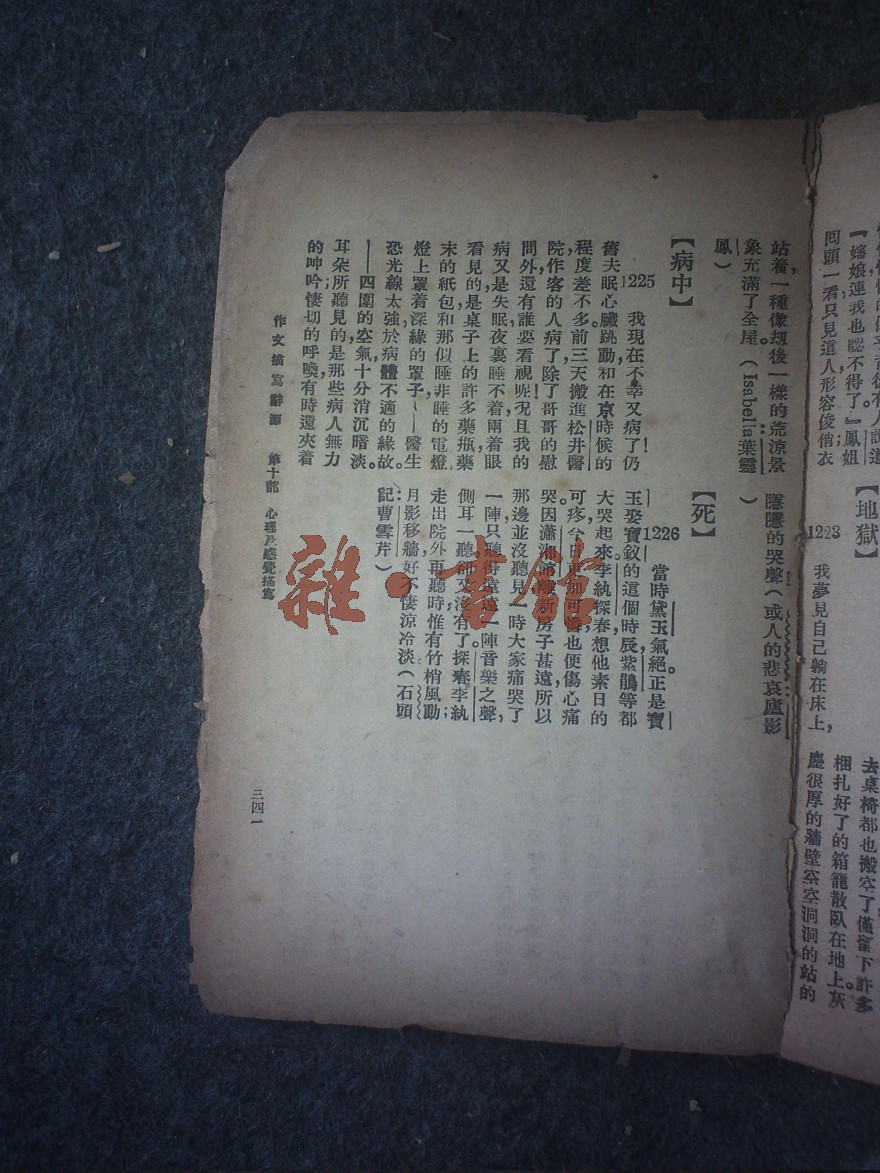 『嬸娘連我也認不得了。』鳳姐
回頭一看,只見這人形容俊俏,衣
【地獄】
1223 我夢見自己躺在床上,
去,桌椅都也搬空了,僅留下許多
梱扎好了的箱籠散臥在地上。灰
塵很厚的牆壁空空洞洞的站的
站着,一種像刼後一樣的荒涼景
象充滿了全屋。(Isabella葉靈
鳳)
【病中】
1225 我現在不幸又病了!仍
舊夫眠心臟跳動和在京時候的
程度差不多。前三天搬進松井醫
院。作客的人病了,除了哥哥的慰
問外,還有誰要看視呢?況且我的
病又是失眠,夜裏睡不着,兩着眼
看見的,是桌子上的許多藥瓶,藥
末的紙包和那似睡非睡的電燈,
燈上罩着深緣的罩子——醫生
恐光線太強,於病體不適的緣故。
——四圍的空氣十分消沉,暗淡。
耳朵所聽見的,是那些病人無力
的呻吟;悽切的呼喚,有時還夾着
隱隱的哭聲!(或人的悲哀廬影
)
【死】
1226 當時黛玉氣絕,正是寶
玉娶寶釵的這個時辰。紫鵑等都
大哭起來。李紈探春想他素日的
可疼,今日更加可憐,也便傷心痛
哭。因瀟湘館離新房子甚遠,所以
那邊並沒聽見。一時大家痛哭了
一陣,只聽得遠遠一陣音樂之聲,
側耳一聽,卻又沒有了。探春李紈
走出院外再聽時,惟有竹梢風動,
月影移牆,好不悽涼冷淡。(石頭
記曹雪芹)
作文描寫辭源 第十部 心理及感覺描寫
三四一
雜·書館